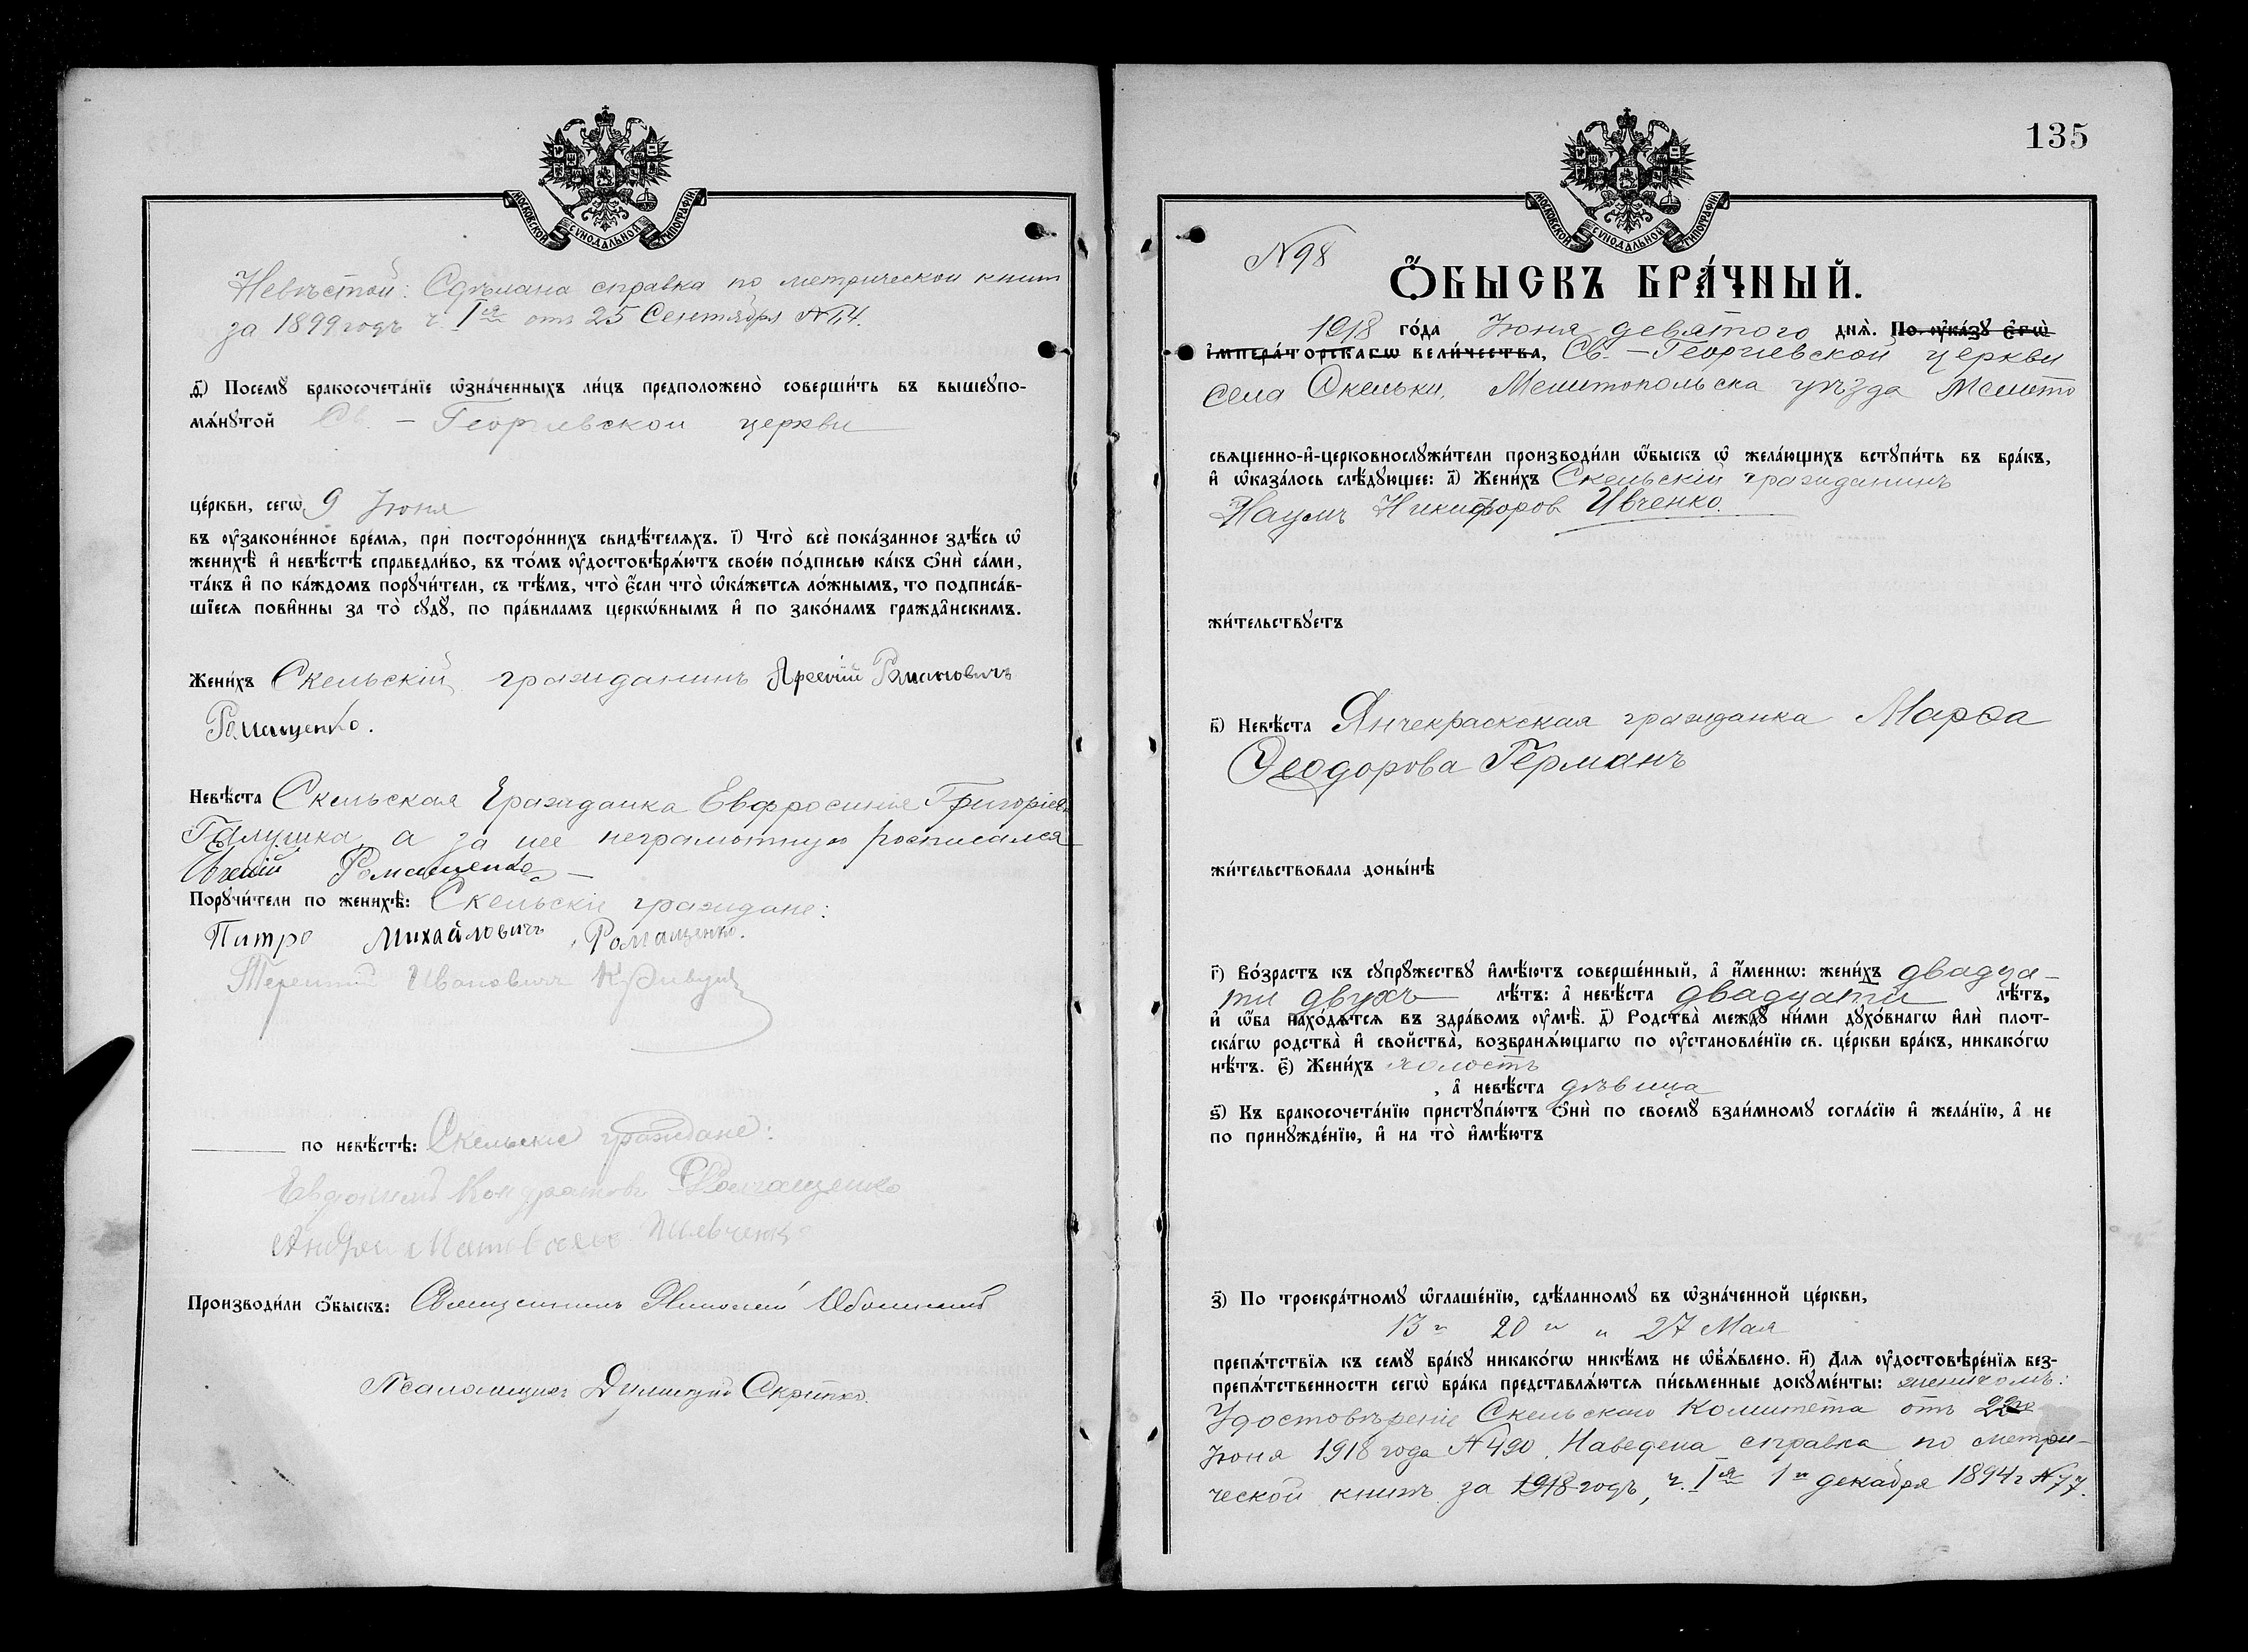 МОСКОВСКОЙ СУНОДАЛЬНОЙ ТИПОГРАФІИ
Невѣстой: Сдѣлана справка по метрической книг
за 1899 годъ ч. Iая отъ 25 Сентября №
д҃) Посемꙋ̀ бракосочета́нїе ѡ҆зна́ченныхъ ли́цъ предположено̀ соверши́ть въ вышеꙋпо-
мѧ́нꙋтой Св. – Георгіевской церкви
це́ркви, сегѡ̀ 9 Іюня
въ ᲂу҆законе́нное вре́мѧ, при посторо́ннихъ свидѣ́телѧхъ. і҃) Что̀ всѐ пока́занное здѣ́сь ѡ҆
женихѣ̀ и҆ невѣ́стѣ справедли́во, въ то́мъ ᲂу҆достовѣрѧ́ютъ свое́ю по́дписью ка́къ ѻ҆нѝ са́ми,
та́къ и҆ по ка́ждомъ порꙋчи́тели, съ тѣ́мъ, что̀ є҆́сли что̀ ѡ҆ка́жетсѧ ло́жнымъ, то подписа́в-
шїесѧ пови́нны за то̀ сꙋдꙋ̀, по пра́виламъ церкѡ́внымъ и҆ по зако́намъ гражда́нскимъ.
Жени́хъ Скельскій гражданинъ Арсеній Романовичъ
Ромащенко.
Невѣ́ста Скельская Гражданка Евфросинія Григоріев
Галушка, а за нее неграмотную росписался
Ромащенко
Порꙋчи́тели по женихѣ̀: Скельскіе граждане:
Питро Михайловичъ Ромащенко.
Терентий Ивановичъ Кривуля
по невѣ́стѣ: Скельскіе граждане:
Евдокимъ Кондратовъ Ромащенко
Андрей
Производи́ли ѻ҆́быскъ: Священникъ Николай
Псаломщикъ Скрипка.
135
МОСКОВСКОЙ СУНОДАЛЬНОЙ ТИПОГРАФІИ
№ 98
Ѻ҆́БЫСКЪ БРА́ЧНЫЙ.
1918 го́да Іюня девятого днѧ̀. По ᲂу҆ка́зꙋ є҆гѡ̀
і҆мпера́торскагѡ вели́чества, Св. – Георгіевской церкви
села Скельки, Мелитопольска уѣзда Мелито
свѧщенно-и҆-церковнослꙋжи́тели производи́ли ѡ҆́быскъ ѡ҆ жела́ющихъ встꙋпи́ть въ бра́къ,
и҆ ѡ҆каза́лось слѣ́дꙋющее: а҃) Жени́хъ Скельскій гражданинъ
Наумъ Никифоров Ивченко.
жи́тельствꙋетъ
в҃) Невѣ́ста Янчекракская гражданка Марѳа
Ѳеодорова Германъ
жи́тельствовала доны́нѣ
г҃) Во́зрастъ къ сꙋпрꙋ́жествꙋ и҆мѣ́ютъ соверше́нный, а҆ и҆́меннѡ: жени́хъ двадца-
ти двухъ лѣ́тъ: а҆ невѣ́ста двадцати лѣ́тъ,
и҆ ѡ҆́ба нахо́дѧтсѧ въ здра́вомъ ᲂу҆мѣ̀. д҃) Родства̀ междꙋ̀ ни́ми дꙋхо́внагѡ и҆лѝ плот-
ска́гѡ родства̀ и҆ свойства̀, возбранѧ́ющагѡ по ᲂу҆становле́нїю св. це́ркви бра́къ, никако́гѡ
нѣ́тъ. є҃) Жени́хъ холостъ
, а҆ невѣ́ста дѣвица
ѕ҃) Къ бракосочета́нїю пристꙋпа́ютъ ѻ҆нѝ по своемꙋ̀ взаи́мномꙋ согла́сїю и҆ жела́нїю, а҆ не
по принꙋжде́нїю, и҆ на то̀ и҆мѣ́ютъ
з҃) По троекра́тномꙋ ѡ҆глаше́нїю, сдѣ́ланномꙋ въ ѡ҆зна́ченной це́ркви,
13го 20го и 27 Мая
препѧ́тствїѧ къ семꙋ̀ бра́кꙋ никако́гѡ никѣ́мъ не ѡ҆б̾ѧ́влено. и҃) Длѧ ᲂу҆достовѣре́нїѧ без-
препѧ́тственности сегѡ̀ бра́ка представлѧ́ютсѧ пи́сьменные докꙋме́нты: женихомъ:
Удостовѣреніе Скельскаго Комитета отъ
Іюня 1918 года № 490. Наведена справка по метри-
ческой книгѣ за 1918 годъ, ч. Iая 1го декабря 1894 г № 77.